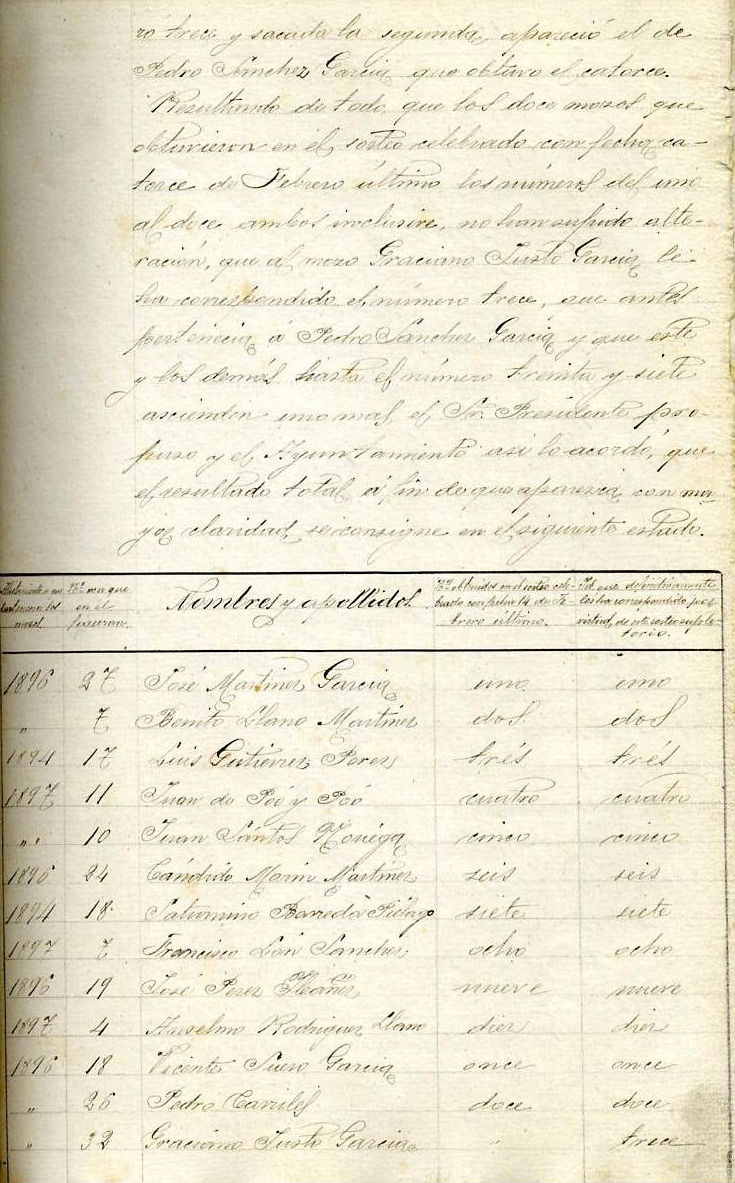 ró trece y sacada la segunda, apareció el de
Pedro Sánchez Garcia, que obtuvo el catorce.
Resultando de todo que los doce mozos que
obtuvieron en el sorteo celebrado con fecha ca-
torce de Febrero último los números del uno
al doce ambos inclusive, no han sufrido alte-
ración, que al mozo Graciano Justo Garcia le
ha correspondido el número trece, que antes
pertenecia á Pedro Sanchez Garcia y que este
y los demás hasta el número treinta y siete
ascienden uno mas, el Sr. Presidente pro-
puso y el Ayuntamiento asi lo acordó, que
el resultado total, á fin de que aparezca con ma-
yor claridad, se consigne en el siguiente estado.
Alistamiento á que pertenecen los mozos
Nº con que en él figuran.
Nombres y apellidos.
Nº obtenidos en el sorteo cele-
brado con fecha 14 de Fe-
brero último.
Id. que definitivamente
les ha correspondido por
virtud de este sorteo suple-
torio.
1896 27 José Martinez Garcia uno uno
" 7 Benito Llano Martinez dos dos
1894 17 Luis Gutierrez Perez trés trés
1897 11 Juan de Póo y Póo cuatro cuatro
" 10 Juan Sántos Noriega cinco cinco
1896 24 Cándido Marin Martinez seis seis
1894 18 Saturnino Barreda Piélago siete siete
1897 7 Francisco Sanchez ocho ocho
1896 19 José Perez Ibañez nueve nueve
1897 4 Anselmo Rodriguez Llano diez diez
1896 18 Vicente Suero Garcia once once
" 26 Pedro Carriles doce doce
" 32 Graciano Justo Garcia " trece